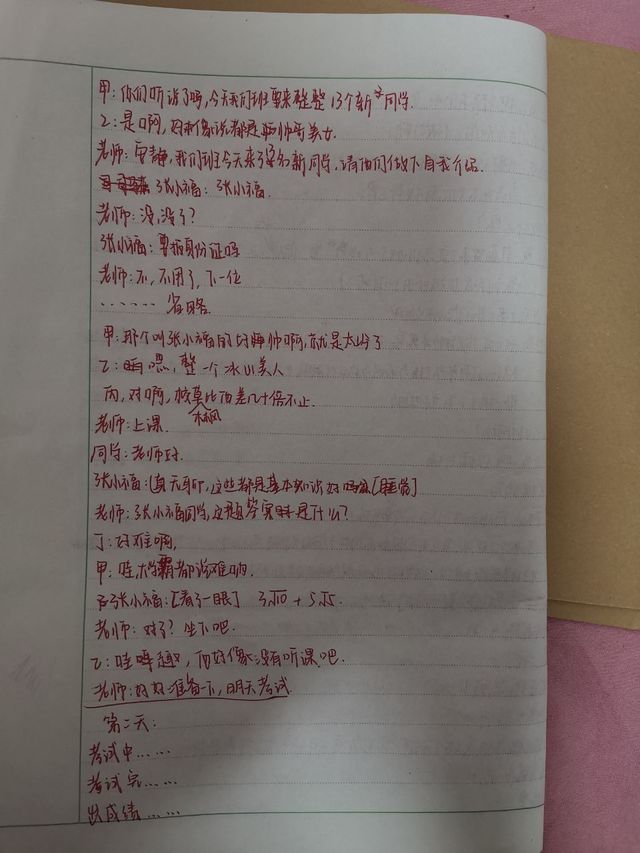 甲：你们听说了吗，今天我们班要来整整13个新同学.
乙：是啊，好像说都是帅哥美女.
老师：安静，我们班今天来了几名新同学，请他们做下自我介绍.
张小福：张小福.
老师：没，没了？
张小福：要报身份证吗
老师：不，不用了，下一位
……省略.
甲：那个叫张小福的好帅啊，就是太冷了
乙：嗯嗯，整一个冰山美人
丙，对啊，校草比他差几十倍不止.
林枫
老师：上课.
同学：老师好.
张小福：(真无聊，这些都是基本知识好吗[睡觉]
老师：张小福同学，这题答案是什么？
丁：好难啊，
甲：哇，学霸都说难呐.
张小福：[看了一眼] 3√10 + 5√5.
老师：对了？坐下吧.
乙：哇，他好像没有听课吧.
老师：好好准备一下，明天考试
第二天：
考试中……
考试完……
出成绩……